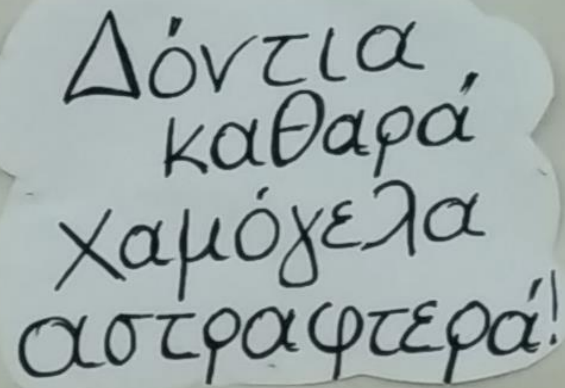 Δόντια
καθαρά
χαμόγελα
αστραφτερά!